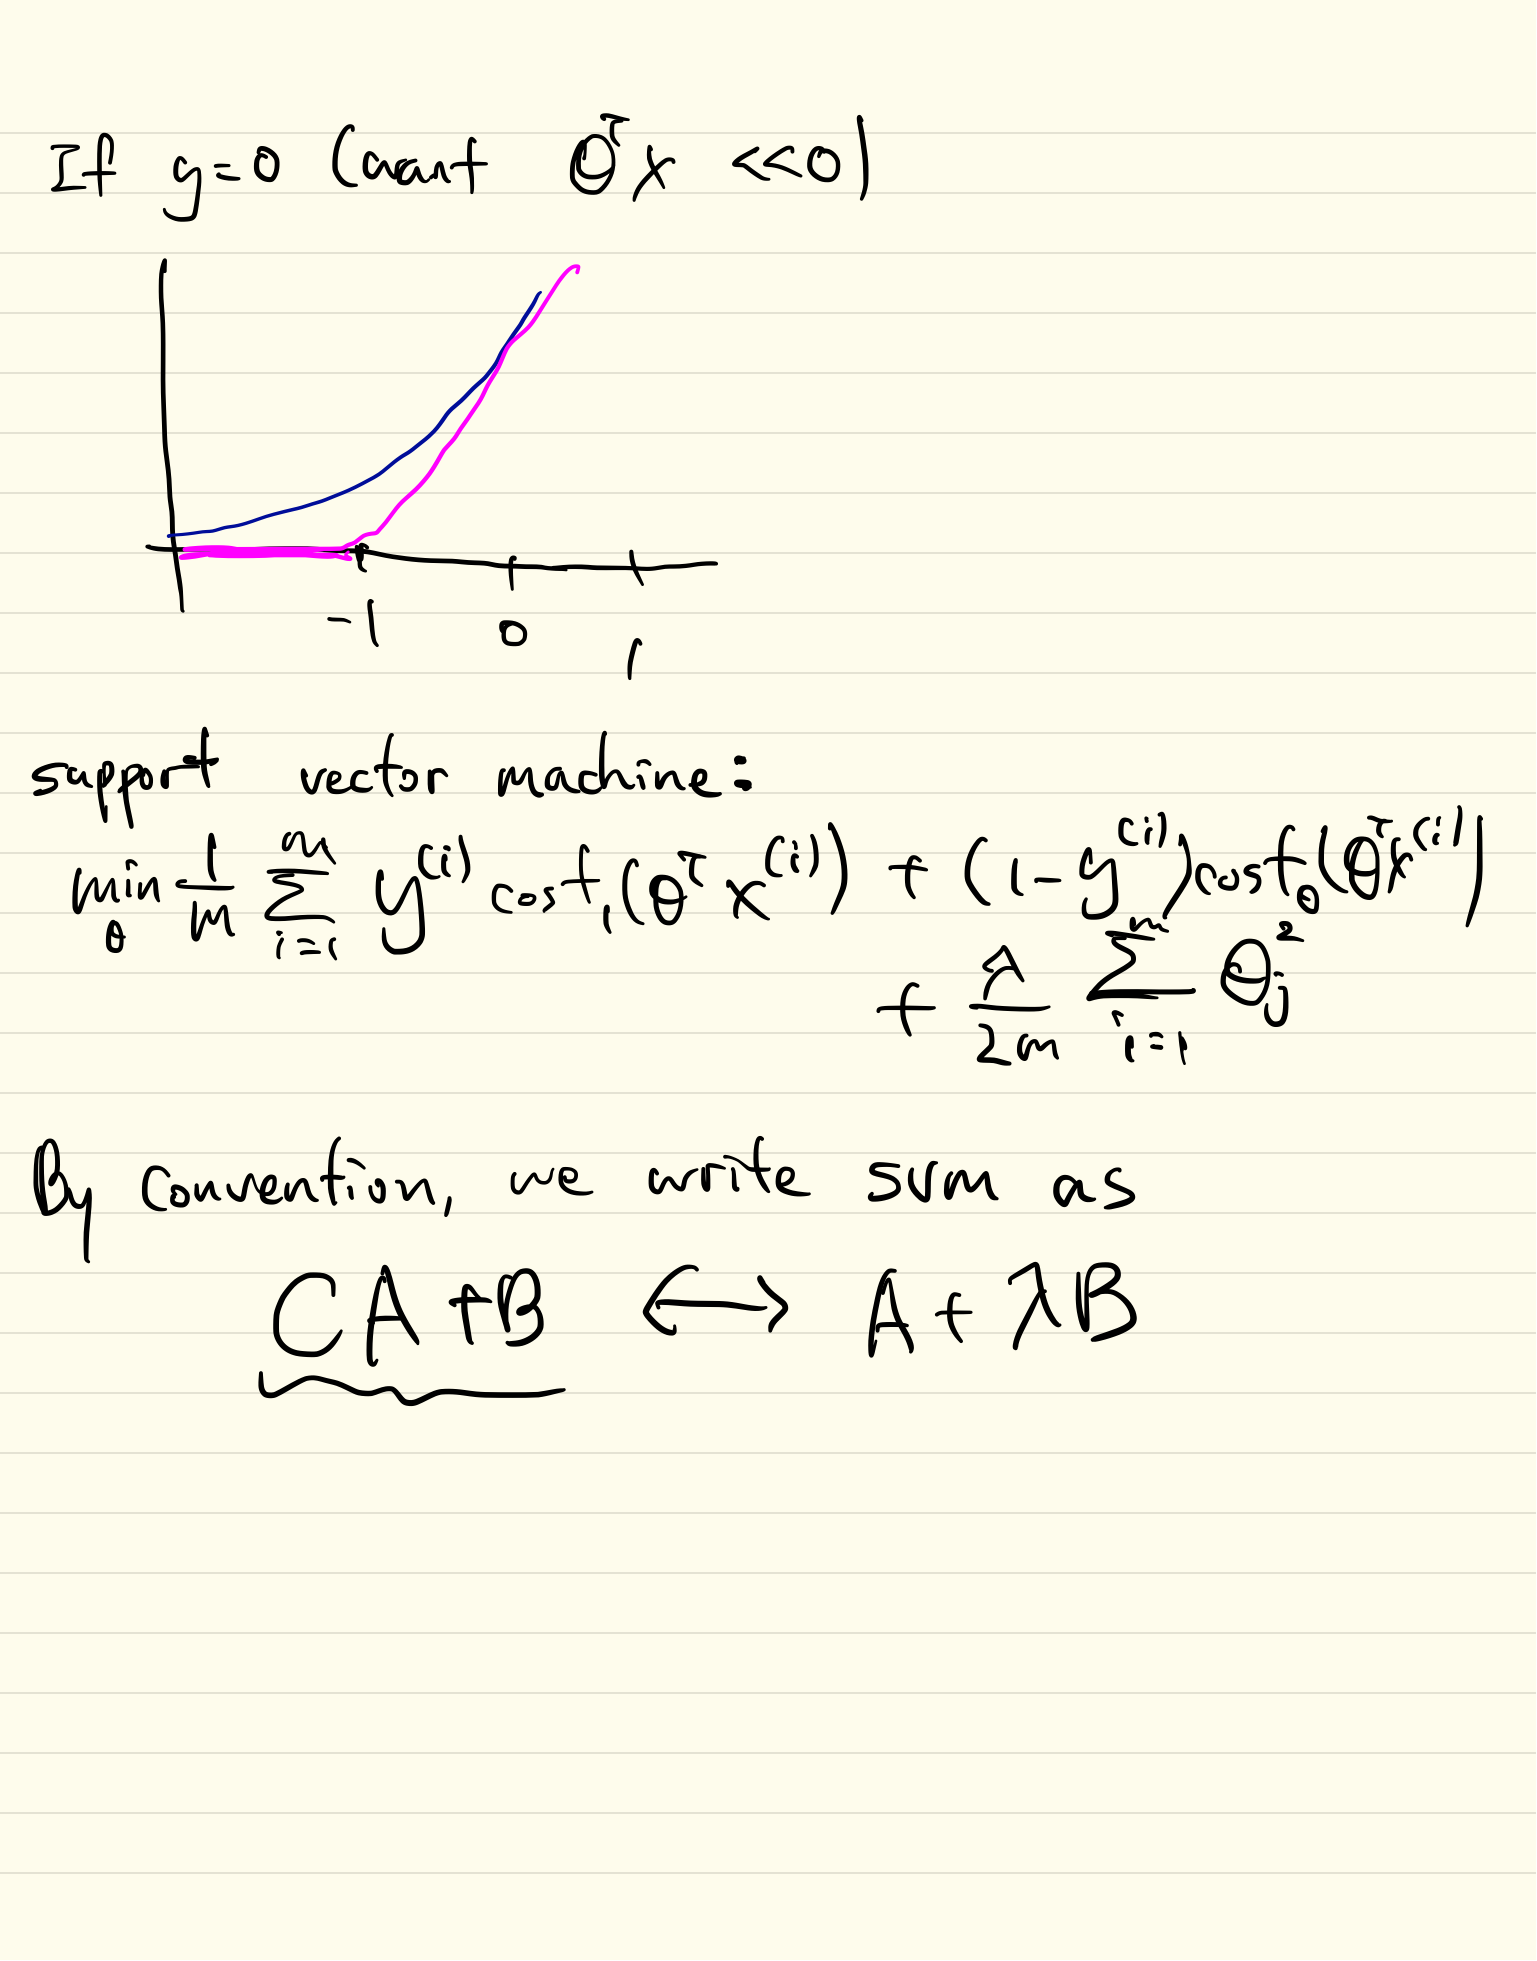 If y=0 (want θᵀx <<0)
-1 0 1
support vector machine:
min_θ 1/m Σ_{i=1}^{m} y^{(i)} cost₁(θᵀx^{(i)}) + (1-y^{(i)})cost₀(θᵀx^{(i)})
+ λ/2m Σ_{i=1}^{m} θ_j²
By convention, we write sum as
CA+B ⟷ A+λB